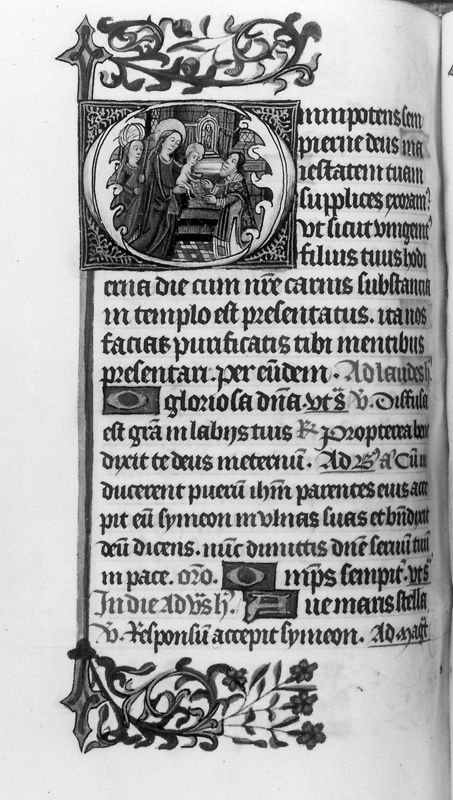 Omnipotens sem
pierne deus ma
iestatem tuam
supplices exoram᷒
vt sicut vnigenit᷒
filius tuus hodi
erna die cum nr̄e carnis substancia
in templo est presentatus. ita nos
facias purificatis tibi mentibus
presentari. per eūdem. Ad laudes h̄.
O gloriosa dn̄a. vts̄ v̄. Diffusa
est grā in labijs tuis R̄ Propterea bene
dixit te deus in eternū. Ad B᷒ a᷒ Cū in
ducerent puerū ih̄m parentes eius acce
pit eū symeon in vlnas suas et bn̄dixit
deū dicens. nūc dimittis dn̄e seruū tuū
in pace. or̄o. Omps sempit᷒. vts̄
In die ad vs̄ h̄. Aue maris stella
v̄. Responsū accepit symeon. Ad magt᷒